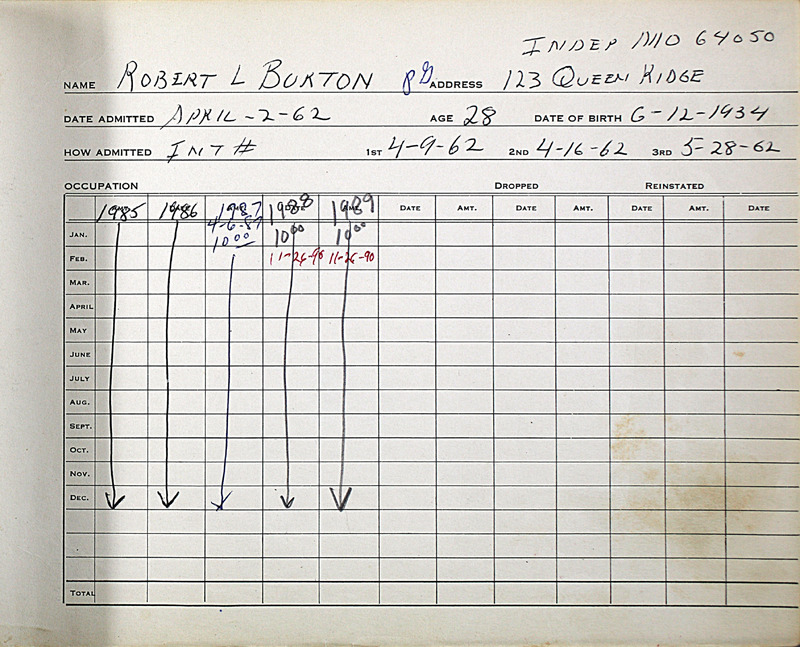 INDEP MO 64050
NAME ROBERT L BURTON ADDRESS 123 QUEEN RIDGE
DATE ADMITTED APRIL-2-62 AGE 28 DATE OF BIRTH 6-12-1934
HOW ADMITTED INT # 1ST 4-9-62 2ND 4-16-62 3RD 5-28-62
OCCUPATION DROPPED REINSTATED
1985 1986 1987 1988 1989 DATE AMT. DATE AMT. DATE AMT. DATE
4-6-87
JAN. 10 00 10 00 10 00
FEB. 11-26-90 11-26-90
MAR.
APRIL
MAY
JUNE
JULY
AUG.
SEPT.
OCT.
NOV.
DEC.
TOTAL